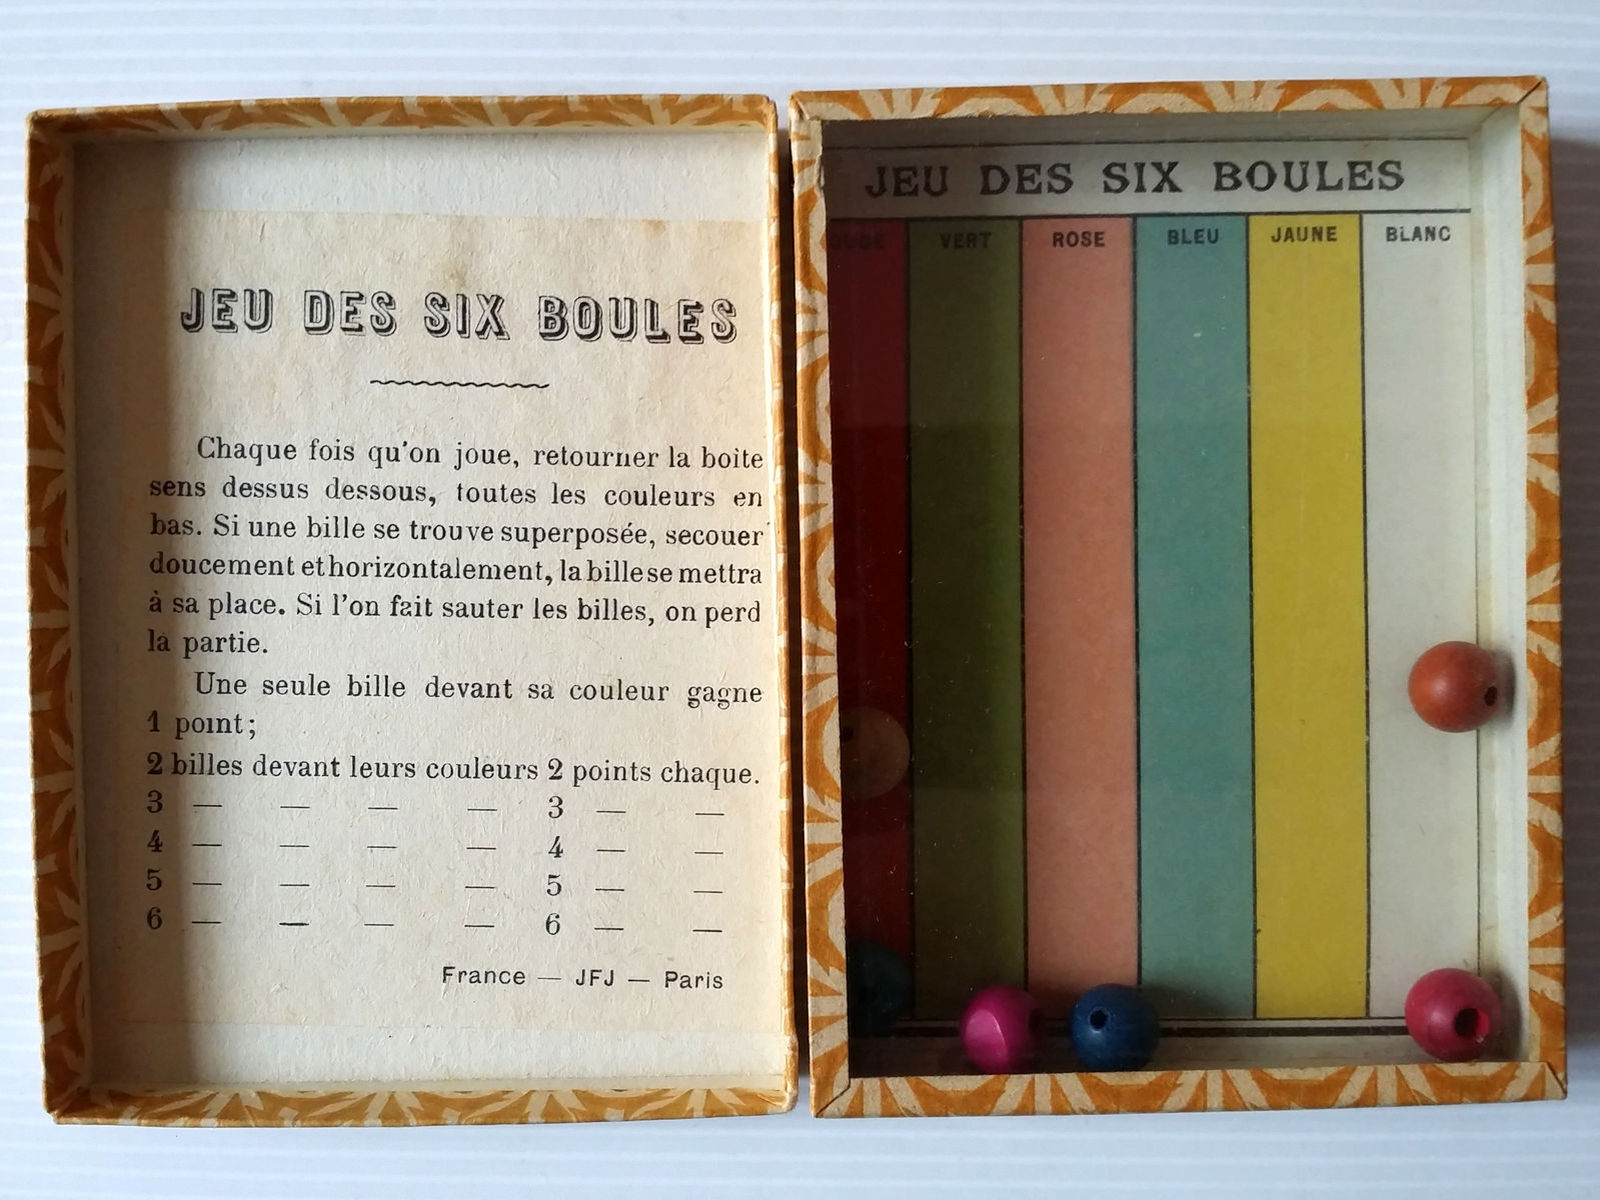 JEU DES SIX BOULES
Chaque fois qu'on joue, retourner la boite
sens dessus dessous, toutes les couleurs en
bas. Si une bille se trouve superposée, secouer
doucement et horizontalement, la bille se mettra
à sa place. Si l'on fait sauter les billes, on perd
la partie.
Une seule bille devant sa couleur gagne
1 point;
2 billes devant leurs couleurs 2 points chaque.
3 — — — — 3 — —
4 — — — — 4 — —
5 — — — — 5 — —
6 — — — — 6 — —
France — JFJ — Paris
JEU DES SIX BOULES
VERT ROSE BLEU JAUNE BLANC